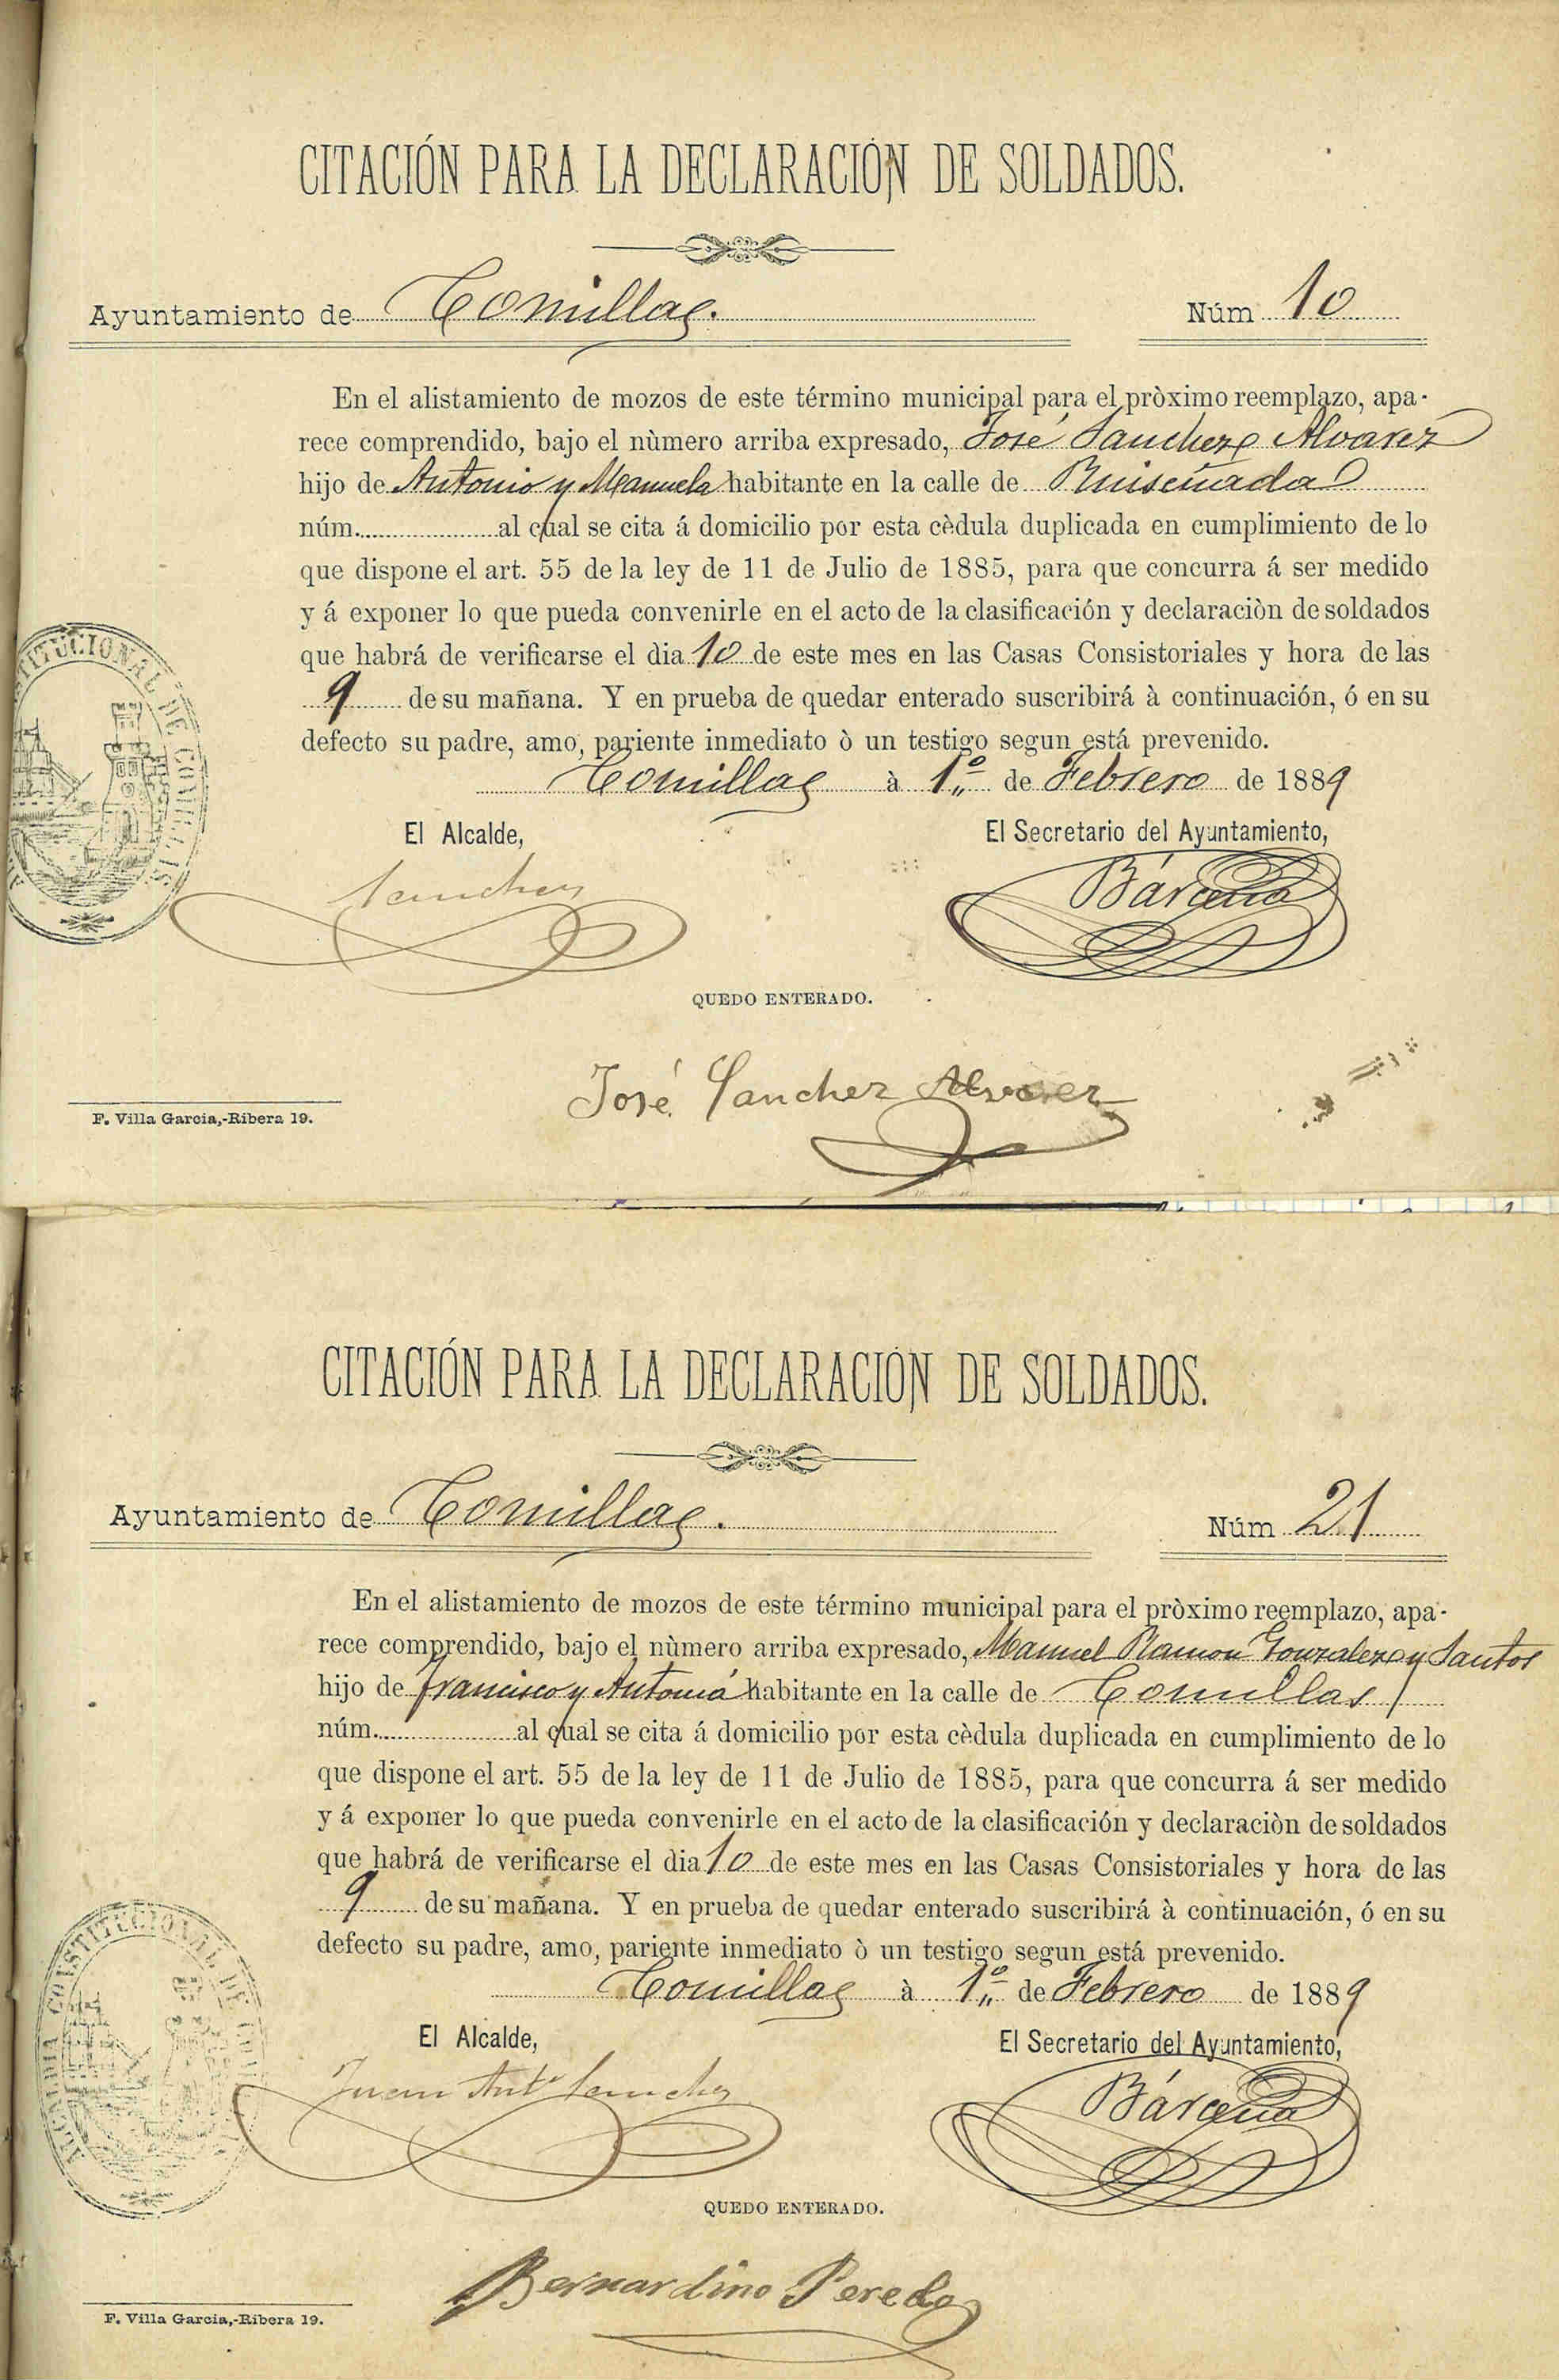 CITACIÓN PARA LA DECLARACIÓN DE SOLDADOS.
Ayuntamiento de Comillas. Núm 10
En el alistamiento de mozos de este término municipal para el pròximo reemplazo, apa-
rece comprendido, bajo el nùmero arriba expresado, José Sanchez Alvarez
hijo de Antonio y Manuela habitante en la calle de Ruiseñada
núm. al cual se cita á domicilio por esta cèdula duplicada en cumplimiento de lo
que dispone el art. 55 de la ley de 11 de Julio de 1885, para que concurra á ser medido
y á exponer lo que pueda convenirle en el acto de la clasificación y declaraciòn de soldados
que habrá de verificarse el dia 10 de este mes en las Casas Consistoriales y hora de las
9 de su mañana. Y en prueba de quedar enterado suscribirá à continuación, ó en su
defecto su padre, amo, pariente inmediato ò un testigo segun está prevenido.
Comillas à 1.º de Febrero de 1889
El Alcalde, El Secretario del Ayuntamiento,
Sanchez Bárcena
QUEDO ENTERADO.
José Sanchez Alvarez
F. Villa Garcia,-Ribera 19.
CITACIÓN PARA LA DECLARACIÓN DE SOLDADOS.
Ayuntamiento de Comillas. Núm 21
En el alistamiento de mozos de este término municipal para el pròximo reemplazo, apa-
rece comprendido, bajo el nùmero arriba expresado, Manuel Ramon Gonzalez y Santos
hijo de Francisco y Antonia habitante en la calle de Comillas
núm. al cual se cita á domicilio por esta cèdula duplicada en cumplimiento de lo
que dispone el art. 55 de la ley de 11 de Julio de 1885, para que concurra á ser medido
y á exponer lo que pueda convenirle en el acto de la clasificación y declaraciòn de soldados
que habrá de verificarse el dia 10 de este mes en las Casas Consistoriales y hora de las
9 de su mañana. Y en prueba de quedar enterado suscribirá à continuación, ó en su
defecto su padre, amo, pariente inmediato ò un testigo segun está prevenido.
Comillas à 1.º de Febrero de 1889
El Alcalde, El Secretario del Ayuntamiento,
Juan Ant.º Sanchez Bárcena
QUEDO ENTERADO.
Bernardino Peredo
F. Villa Garcia,-Ribera 19.